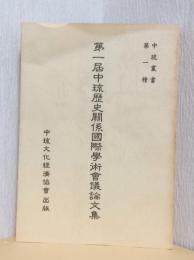 中琉叢書
第一種
第一屆中琉歷史關係國際學術會議論文集
中琉文化經濟協會 出版